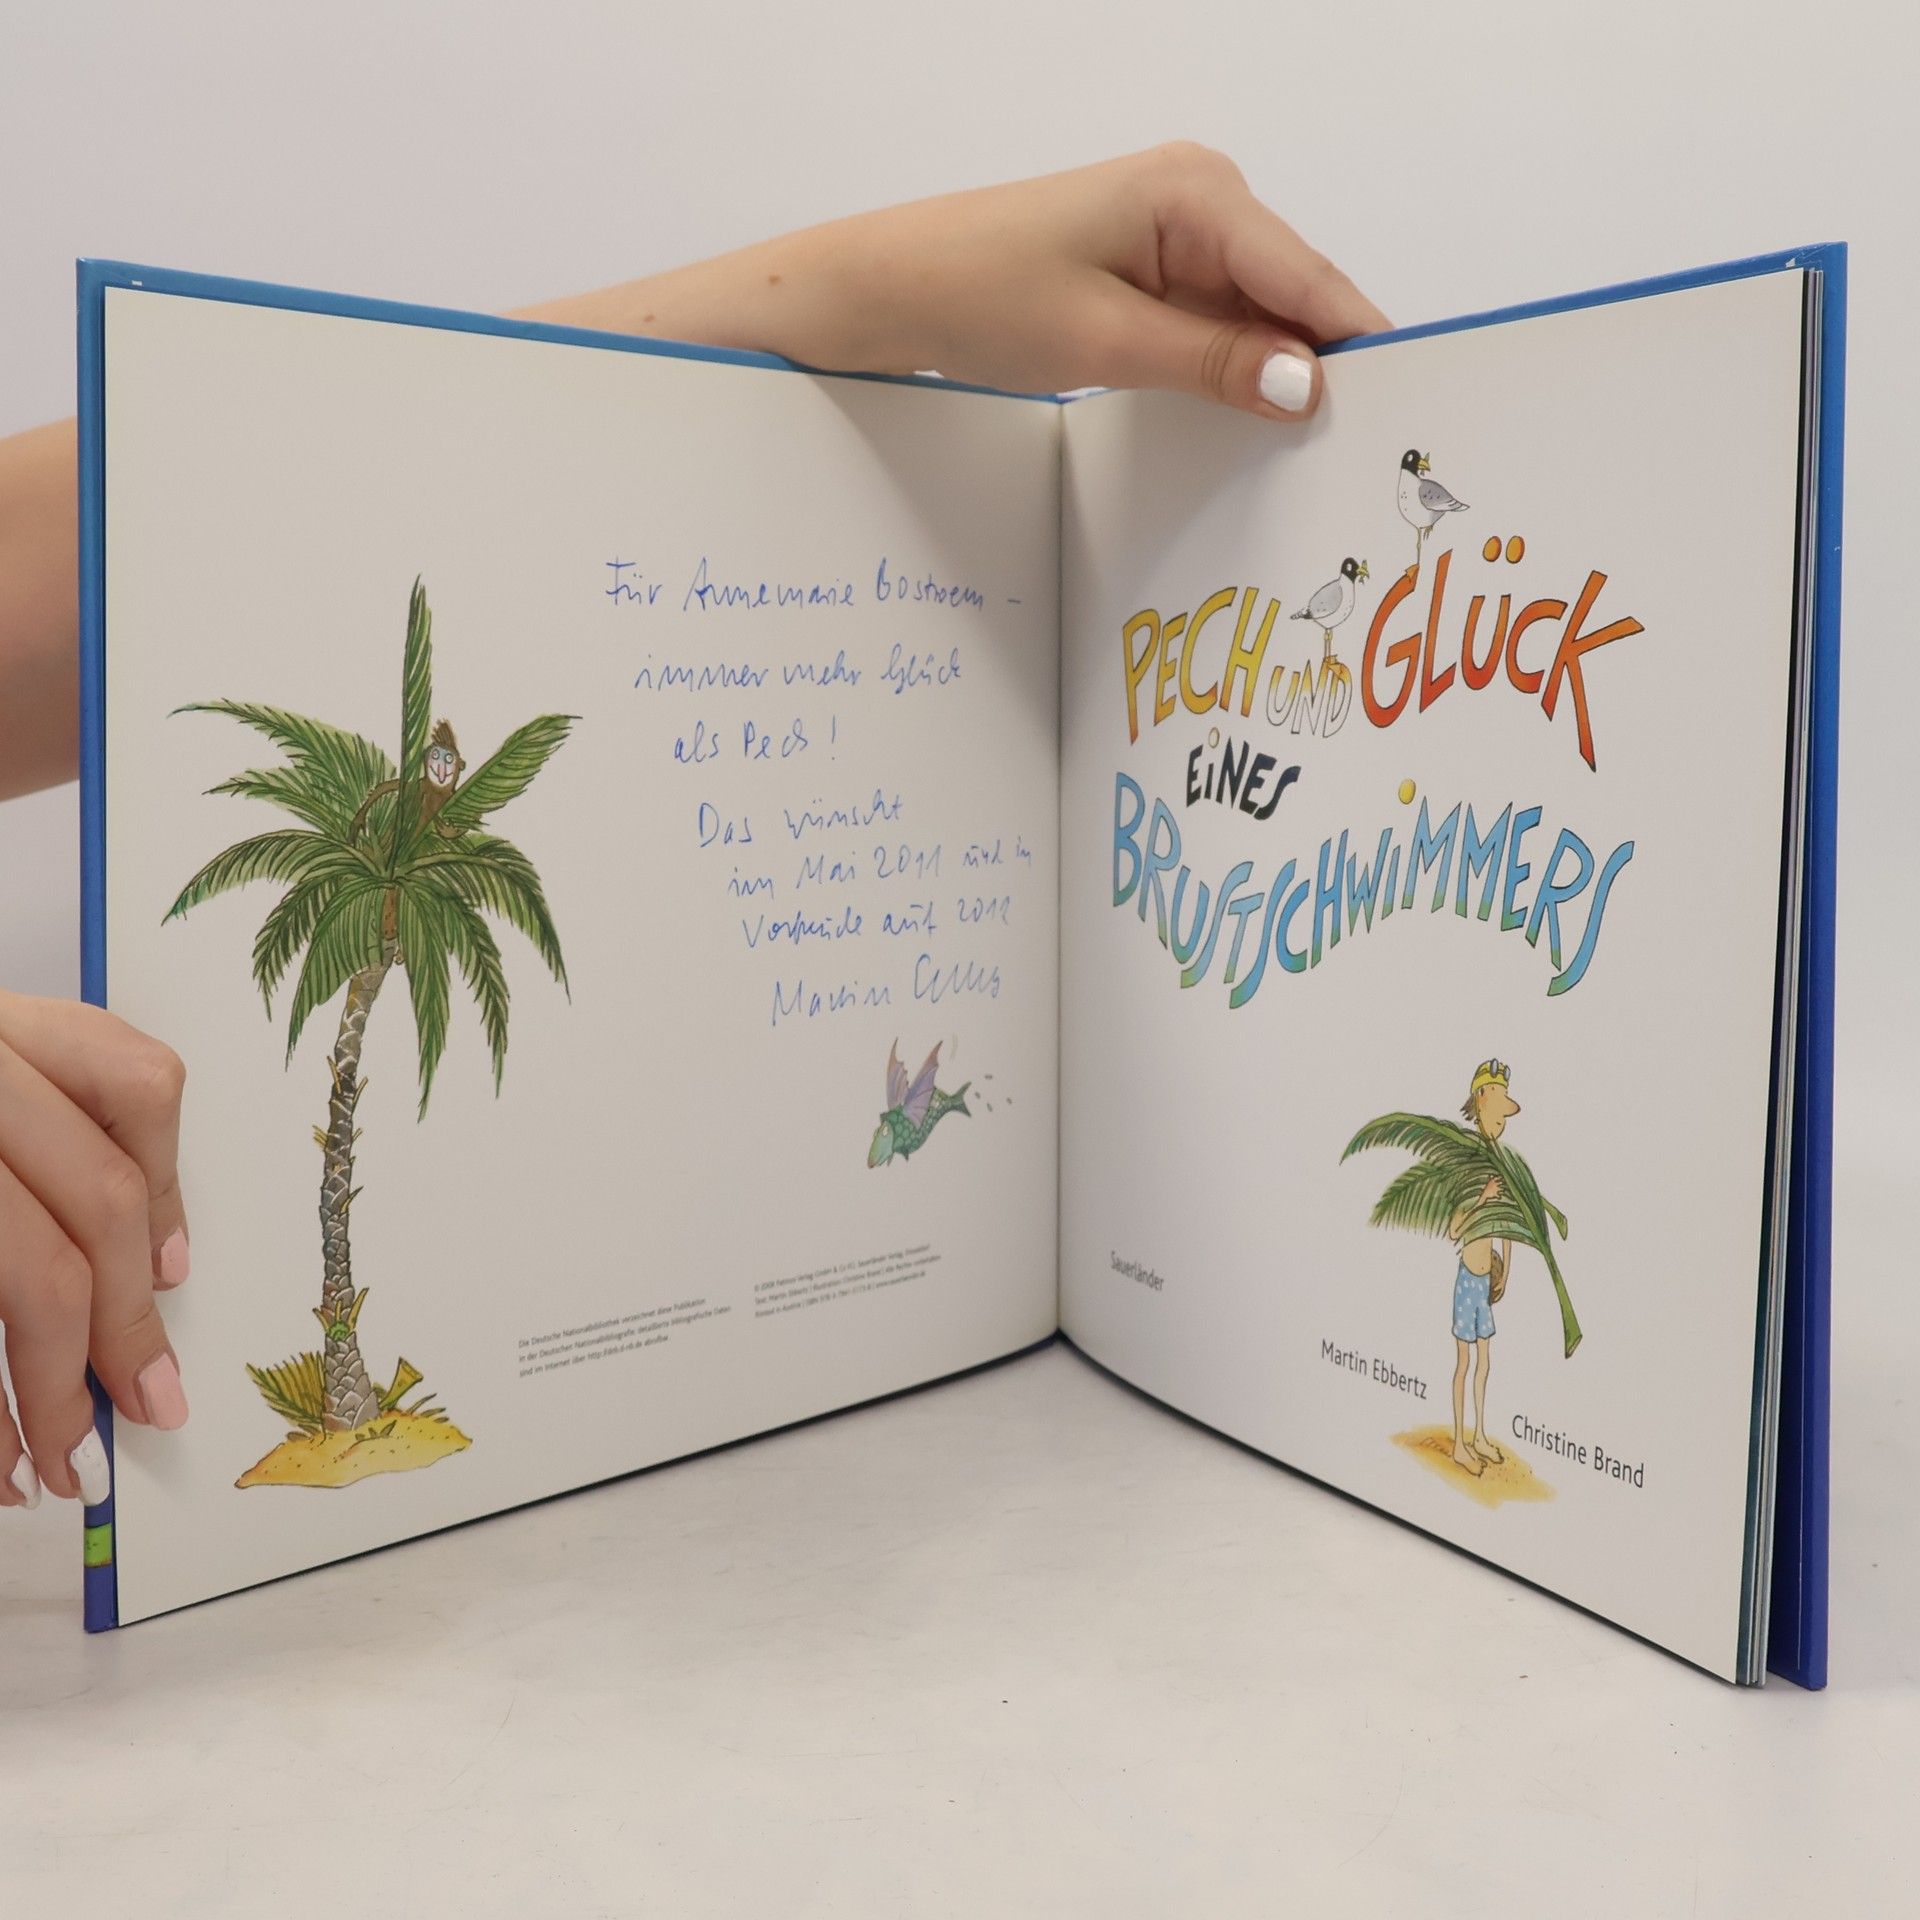 Für Annemarie Bostroem –
immer mehr Glück
als Pech!
Das wünscht
im Mai 2011 und in
Vorfreude auf 2012
Martin
Die Deutsche Nationalbibliothek verzeichnet diese Publikation
in der Deutschen Nationalbibliografie; detaillierte bibliografische Daten
sind im Internet über http://dnb.d-nb.de abrufbar.
© 2008 Patmos Verlag GmbH & Co KG, Sauerländer Verlag, Düsseldorf
Text: Martin Ebbertz | Illustration: Christine Brand | Alle Rechte vorbehalten
Printed in Austria | ISBN | www.sauerlaender.de
PECH UND GLÜCK
EINES
BRUSTSCHWIMMERS
Sauerländer
Martin Ebbertz
Christine Brand